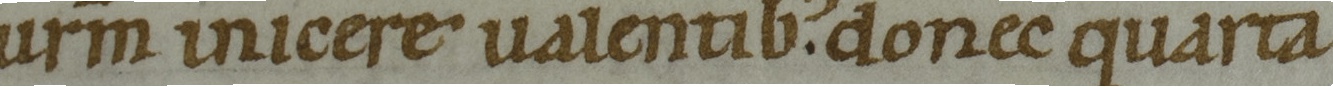 urm̄ inicere ualentib; donec quarta